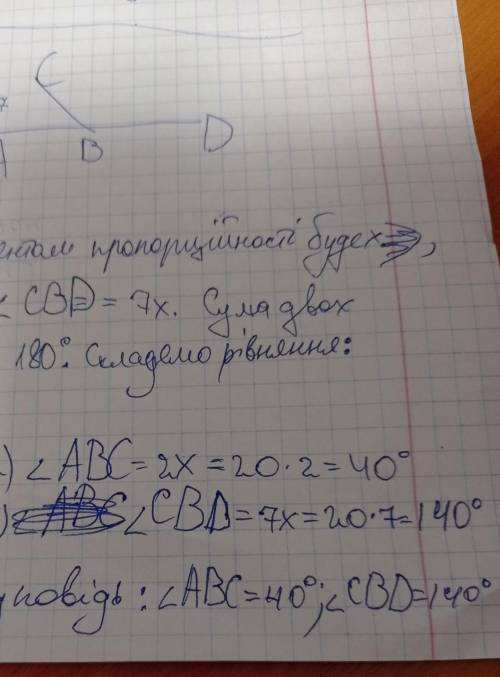 C
A B D
ентам пропорційності будех,
∠CBD = 7x. Сума двох
180°. Складемо рівняння:
) ∠ABC = 2x = 20·2 = 40°
) ∠CBD = 7x = 20·7 = 140°
повідь: ∠ABC = 40°; ∠CBD = 140°